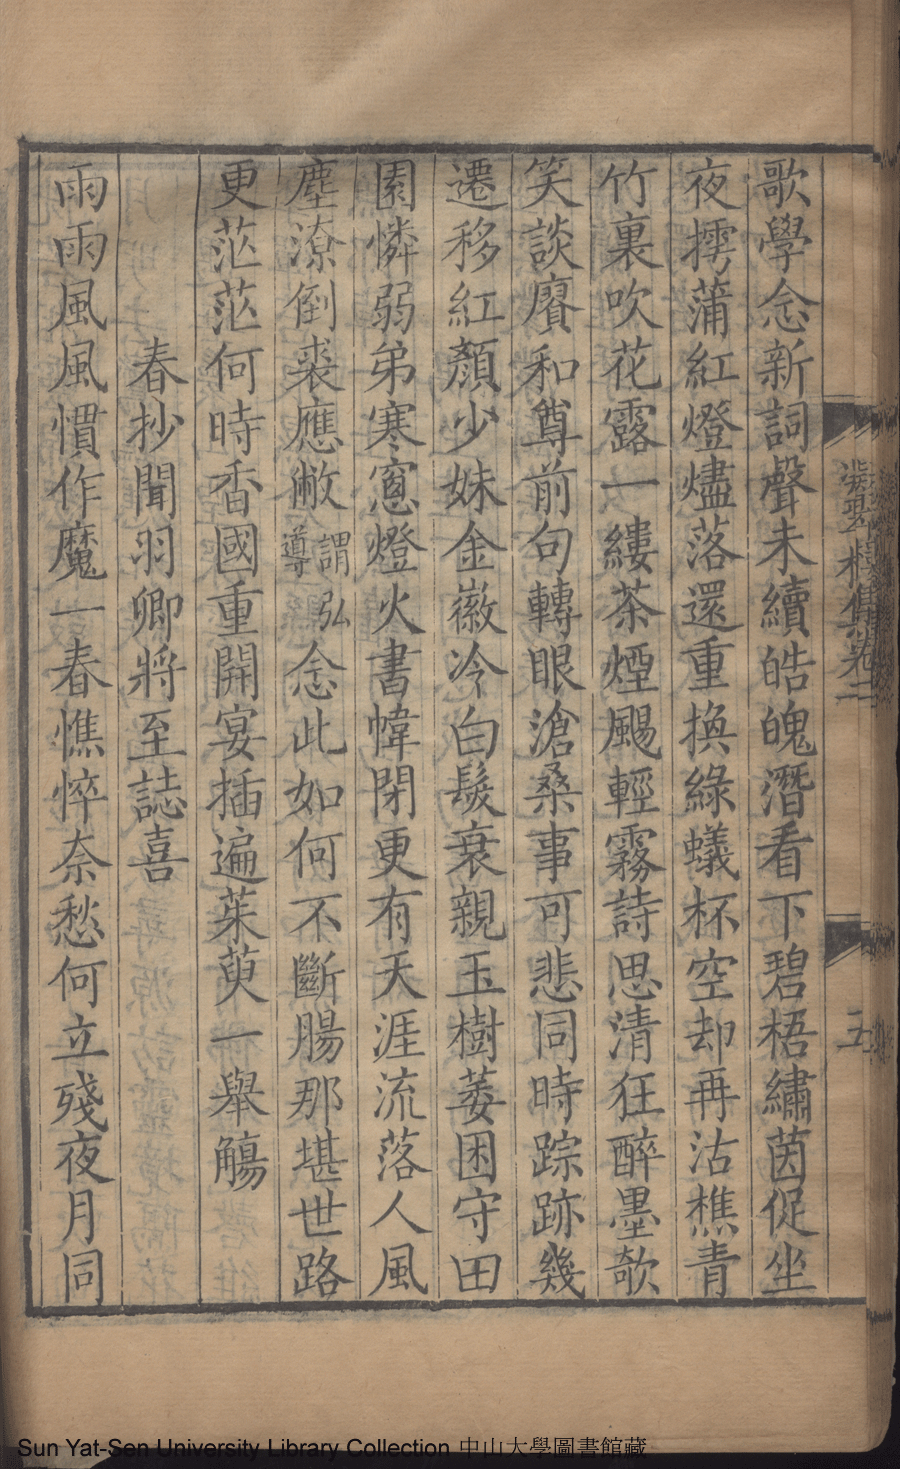 歌學念新詞聲未續皓魄潛看下碧梧繡茵促坐
夜摴蒲紅燈燼落還重換綠蟻杯空却再沽樵青
竹裏吹花露一縷茶煙颺輕霧詩思清狂醉墨欹
笑談賡和尊前句轉眼滄桑事可悲同時踪跡幾
遷移紅顏少妹金徽冷白髮衰親玉樹萎困守田
園憐弱弟寒窻燈火書幃閉更有天涯流落人風
塵潦倒裘應敝謂弘導念此如何不斷腸那堪世路
更茫茫何時香國重開宴插遍茱萸一舉觴
春抄聞羽卿將至誌喜
雨雨風風慣作魔一春憔悴奈愁何立殘夜月同
集卷二
五
Sun Yat-Sen University Library Collection 中山大學圖書館藏